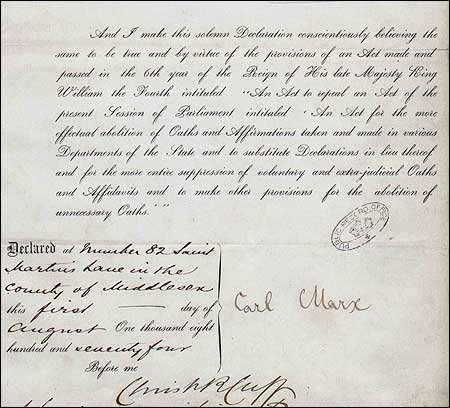 And I make this solemn Declaration conscientiously believing the
same to be true and by virtue of the provisions of an Act made and
passed in the 6th year of the Reign of His late Majesty King
William the Fourth intituled "An Act to repeal an Act of the
present Session of Parliament intituled 'An Act for the more
effectual abolition of Oaths and Affirmations taken and made in various
Departments of the State and to substitute Declarations in lieu thereof
and for the more entire suppression of voluntary and extra-judicial Oaths
and Affidavits and to make other provisions for the abolition of
unnecessary Oaths.'"
PUBLIC RECORD OFFICE
Declared at Number 82 Saint
Martins Lane in the
County of Middlesex
this first day of
August One thousand eight
hundred and seventy four
Carl Marx
Before me